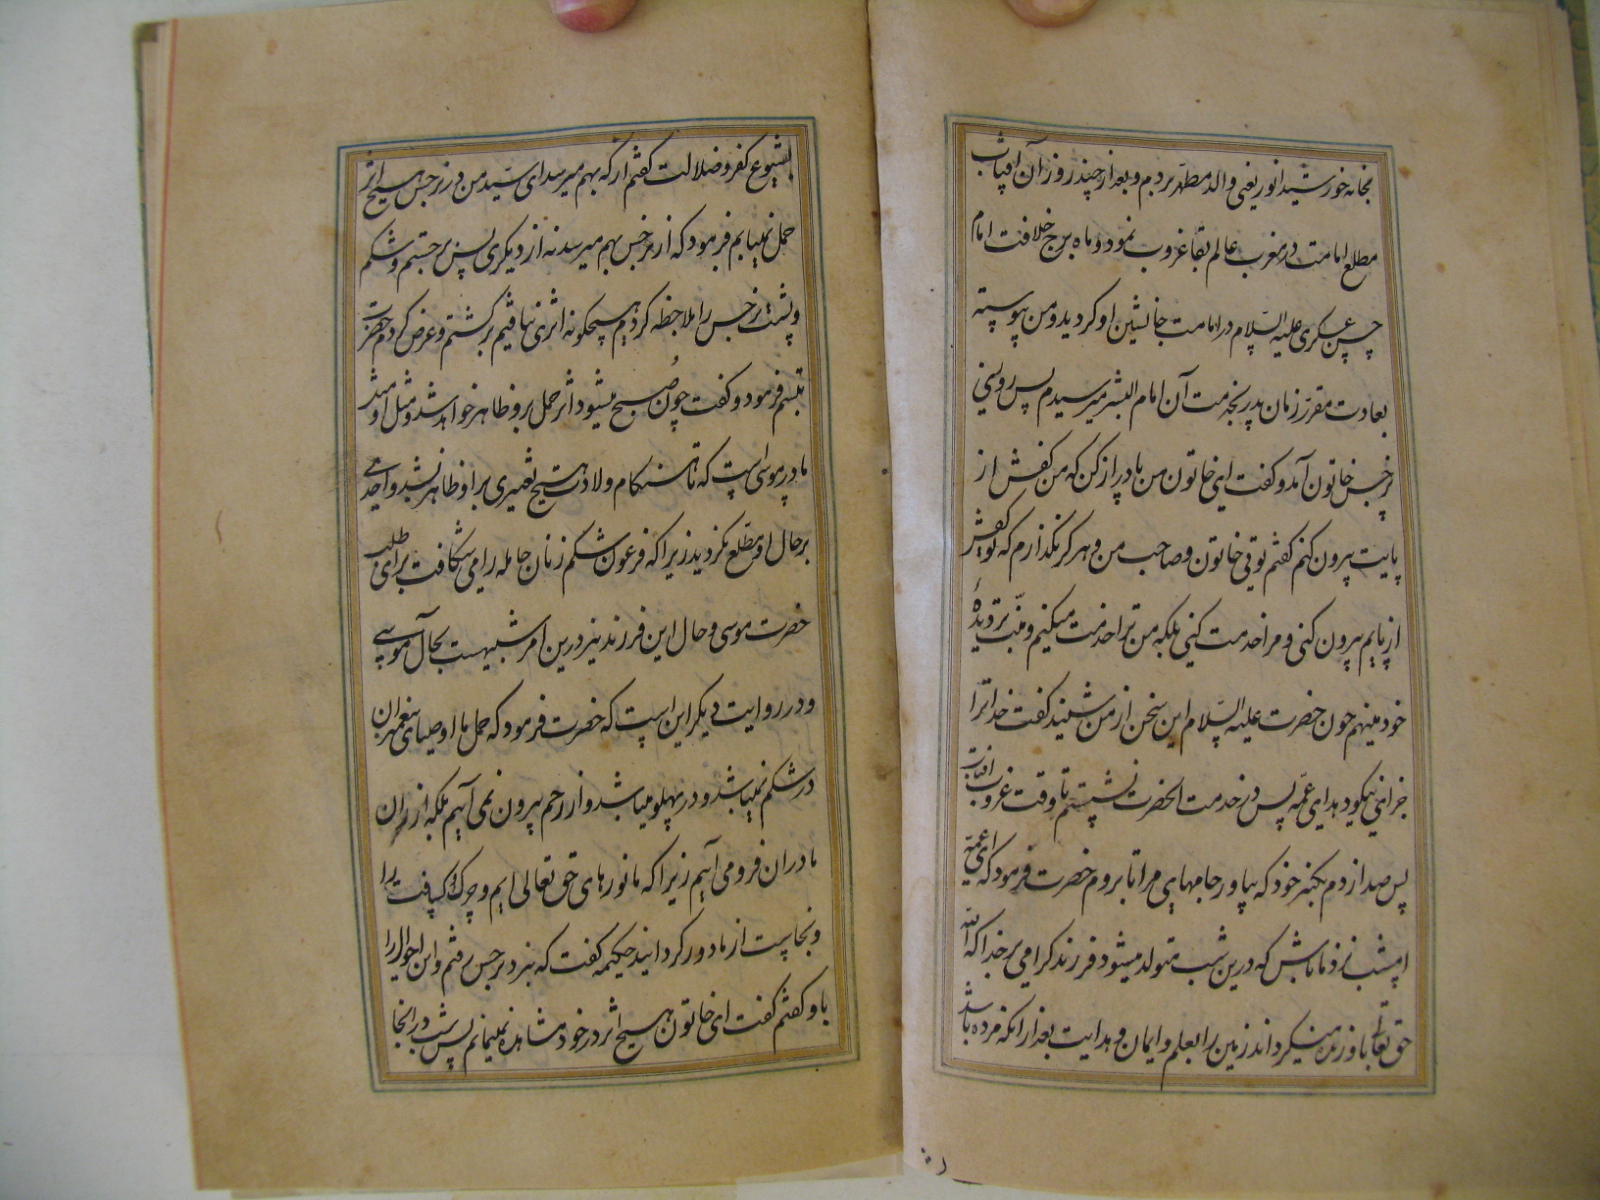 بخانه خورشید انور یعنی والد مطهر بردم و بعد از چند روز آن آفتاب
مطلع امامت در مغرب عالم بقا غروب نمود و ماه برج خلافت امام
حسن عسکری علیه السلام در امامت جانشین او کردید و من پیوسته
بعادت مقرر زمان پدر بخدمت آن امام البشر میرسیدم پس روزی
نرجس خاتون آمد و کفت ای خاتون من پا دراز کن که من کفش از
پایت بیرون کنم کفتم توئی خاتون و صاحب من و هرکز نکذارم که تو کفش
از پایم بیرون کنی و مرا خدمت کنی بلکه من ترا خدمت میکنم و منت بر دیدهٔ
خود مینهم چون حضرت علیه السلام این سخن از من شنید کفت خدا ترا
جزای نیکو دهد ای عمه پس در خدمت انحضرت نشستم تا وقت غروب افتاب
پس صدا زدم بکنیز خود که بیاور جامهای مرا تا بروم حضرت فرمود که ای عمه
امشب نزد ما باش که درین شب متولد میشود فرزند کرامی بر خدا که الله
حق تعالی باو زنده میکرداند زمین را بعلم و ایمان و هدایت بعد از انکه مرده باشد
بشیوع کفر و ضلالت کفتم از که بهم میرسد ای سید من و در نرجس هیچ اثر
حمل نمییابم فرمود که از نرجس بهم میرسد نه از دیکری پس برجستم و شکم
و پشت نرجس را ملاحظه کردم هیچکونه اثری نیافتم برکشتم و عرض کردم حضرت
تبسم فرمود و کفت چون صبح میشود اثر حمل برو ظاهر خواهد شد و مثل او مثل
مادر موسی است که تا هنکام ولادت هیچ تغییری برا و ظاهر نشد و احدی
بر حال او مطلع نکردید زیرا که فرعون شکم زنان حامله را می شکافت برای طلب
حضرت موسی و حال این فرزند نیز درین امر شبیهست بحال موسی
و در روایت دیکر این است که حضرت فرمود که حمل ما اوصیای پیغمبران
در شکم نمیباشد و در پهلو میباشد و از رحم بیرون نمی آییم بلکه از ران
مادران فرو می آییم زیرا که ما نورهای حق تعالی ایم و چرک و کثافت را
و نجاست از ما دور کردانیده حکیمه کفت که بنزد نرجس رفتم و این احوال را
باو کفتم کفت ای خاتون هیچ اثر در خود مشاهده نمینمایم پس شب در انجا